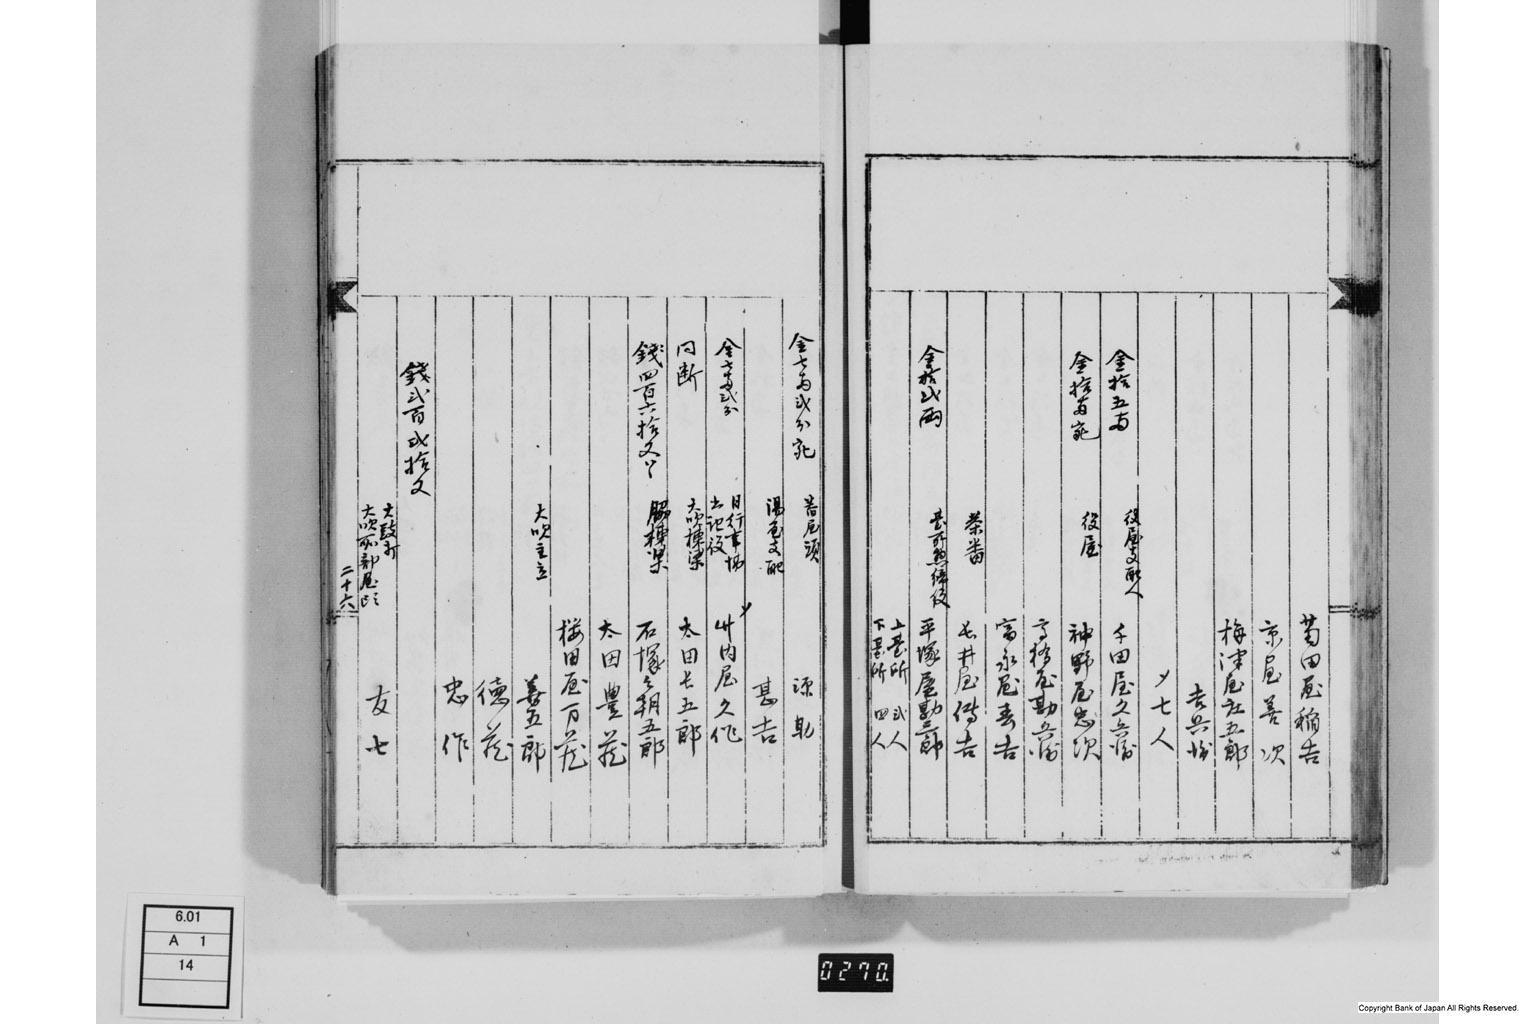 菊田屋稲吉
京屋善次
梅津屋社五郎
吉兵衛
〆七人
金拾五両 役屋支配人 千田屋久兵衛
金拾両宛 役屋 神野屋忠次
高橋屋勘兵衛
富永屋春吉
茶番 長井屋傳吉
金拾弐両 臺所惣締役 平塚屋勘三郎
上臺所 弐人
下臺所 四人
金七両弐分宛 普屋頭 源助
湯屋支配 甚吉
金七両弐分 日行事場 書記役 〆 竹内屋久作
同断 大吹棟梁 太田七五郎
銭四百六拾文ツヽ 脇棟梁 石塚朝五郎
太田豊蔵
桜田屋万蔵
大吹主立 善五郎
徳蔵
忠作
銭弐百弐拾文
太鼓打 大吹所部屋頭 友七
二十六
6.01
A 1
14
0270.
Copyright Bank of Japan All Rights Reserved.